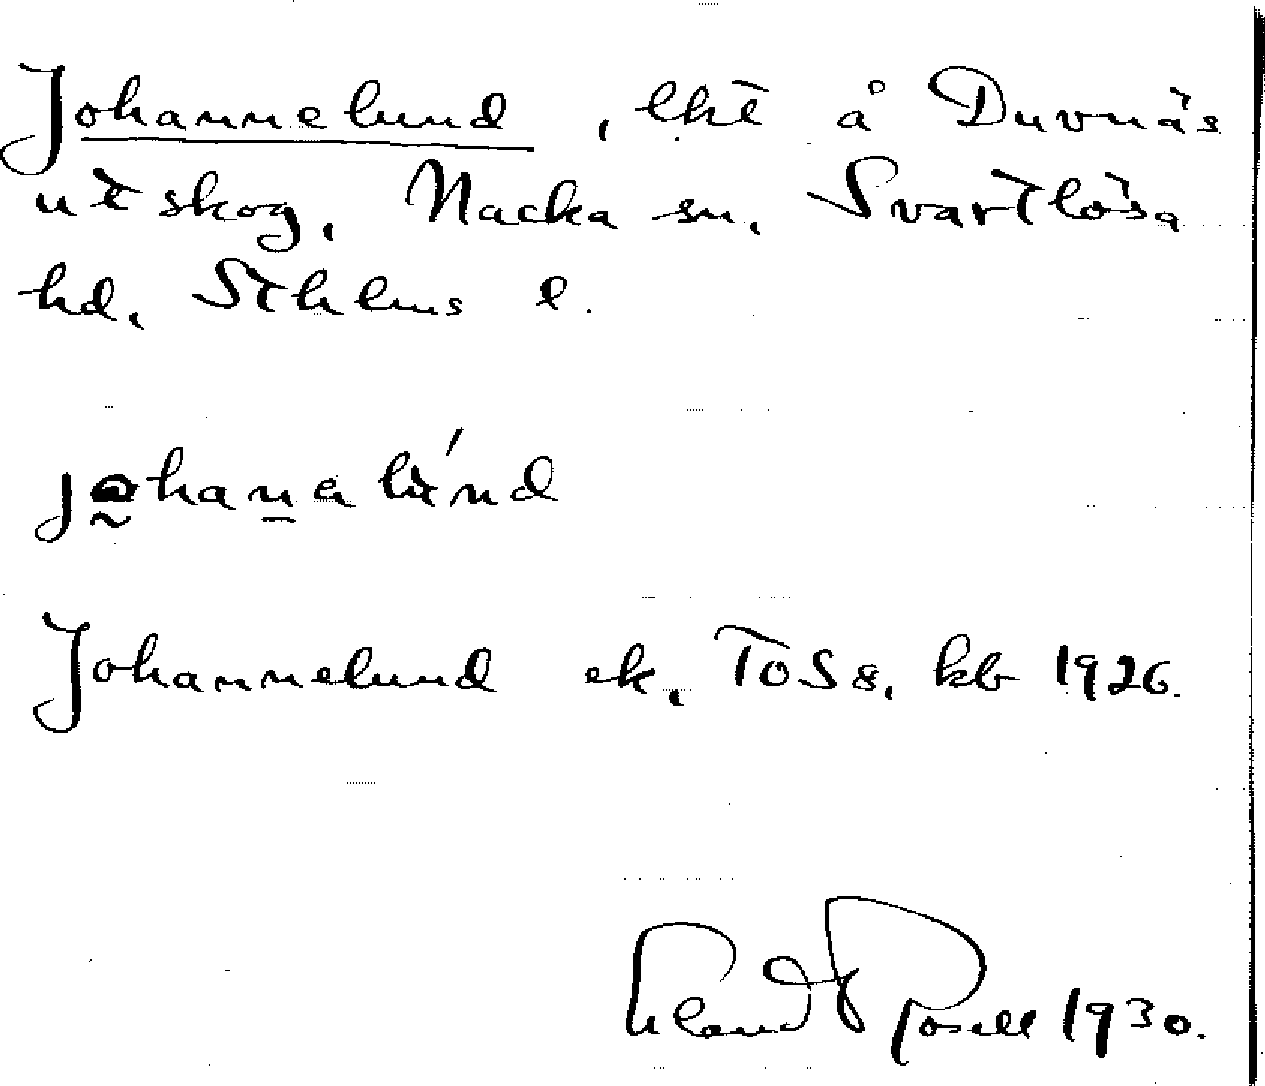 Johannelund, lht å Duvnäs
utskog, Nacka sn, Svartlösa
hd, Sthlms l.
johanalúnd
Johannelund ek.        kb 1926.
Rosell 1930.